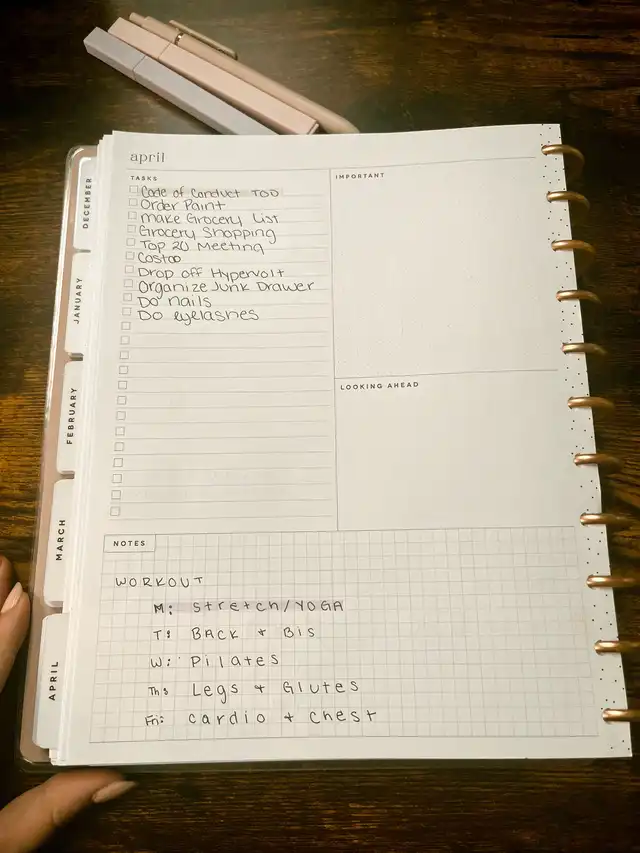 april
TASKS
Code of Conduct TOD
Order Paint
Make Grocery List
Grocery Shopping
Top 20 Meeting
Costco
Drop off Hypervolt
Organize Junk Drawer
Do nails
Do eyelashes
IMPORTANT
LOOKING AHEAD
NOTES
WORKOUT
M: Stretch/YOGA
T: BACK + Bis
W: Pilates
Th: Legs + Glutes
Fri: Cardio + Chest
DECEMBER
JANUARY
FEBRUARY
MARCH
APRIL